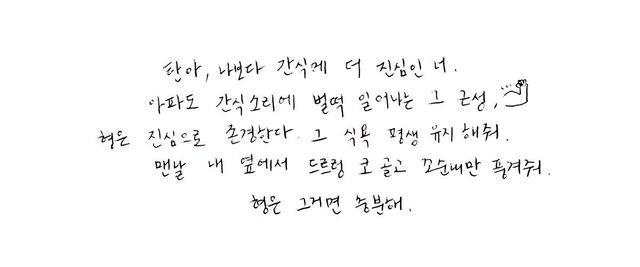 탄아, 나보다 간식에 더 진심인 너.
아파도 간식소리에 벌떡 일어나는 그 근성,
형은 진심으로 존경한다. 그 식욕 평생 유지해줘.
맨날 내 옆에서 드르렁 코 골고 꼬순내만 풍겨줘.
형은 그거면 충분해.